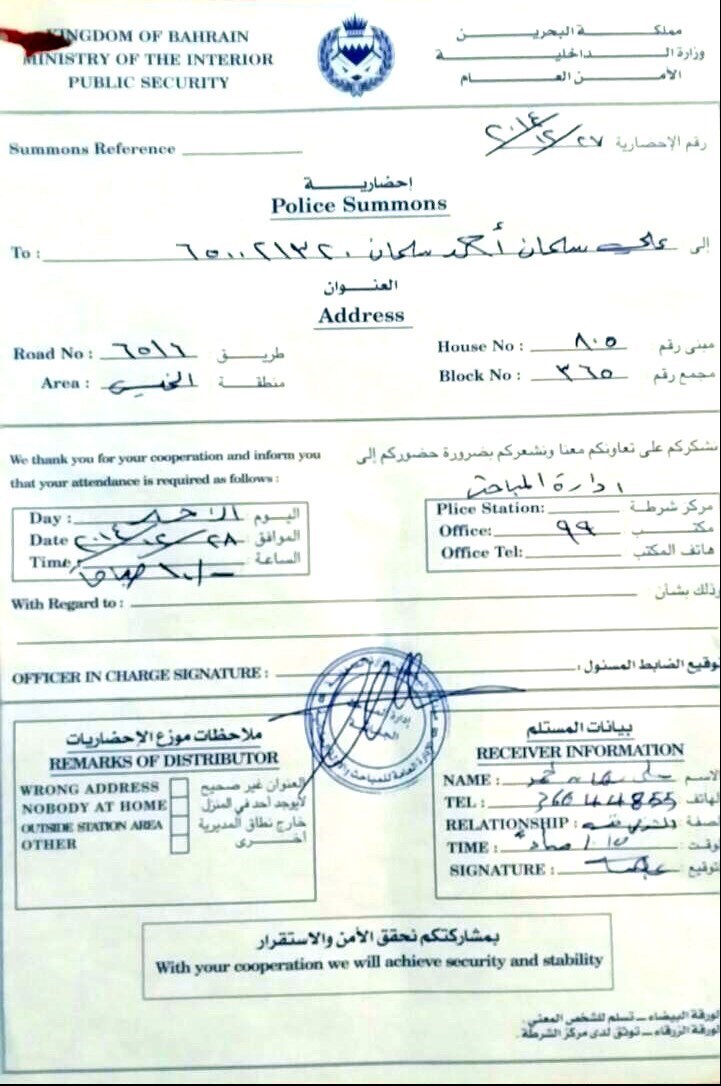 KINGDOM OF BAHRAIN
MINISTRY OF THE INTERIOR
PUBLIC SECURITY
مملكة البحرين
وزارة الداخلية
الأمن العام
Summons Reference
٢٠١٤/١٢/٢٧ رقم الإحضارية
إحضارية
Police Summons
To : علي سلمان أحمد سلمان ٦٥٠٠٢١٣٢٠ إلى
العنوان
Address
Road No : ٦٥١٦ طريق
House No : ٨٠٥ مبنى رقم
Area : الخميس منطقة
Block No : ٣٦٥ مجمع رقم
We thank you for your cooperation and inform you
that your attendance is required as follows :
نشكركم على تعاونكم معنا ونشعركم بضرورة حضوركم إلى
ادارة المباحث
Day : الاحد اليوم
Date ٢٠١٤/١٢/٢٨ الموافق
Time ١٠/- صباحا الساعة
Plice Station: مركز شرطة
Office: ٩٩ مكتب
Office Tel: هاتف المكتب
With Regard to : وذلك بشأن
OFFICER IN CHARGE SIGNATURE : توقيع الضابط المسئول :
ملاحظات موزع الإحضاريات
REMARKS OF DISTRIBUTOR
WRONG ADDRESS العنوان غير صحيح
NOBODY AT HOME لايوجد أحد في المنزل
OUTSIDE STATION AREA خارج نطاق المديرية
OTHER أخرى
بيانات المستلم
RECEIVER INFORMATION
NAME : الاسم
TEL : 36044855 الهاتف
RELATIONSHIP : الصفة
TIME : الوقت
SIGNATURE : التوقيع
بمشاركتكم نحقق الأمن والاستقرار
With your cooperation we will achieve security and stability
الورقة البيضاء – تسلم للشخص المعني.
الورقة الزرقاء – توثق لدى مركز الشرطة.